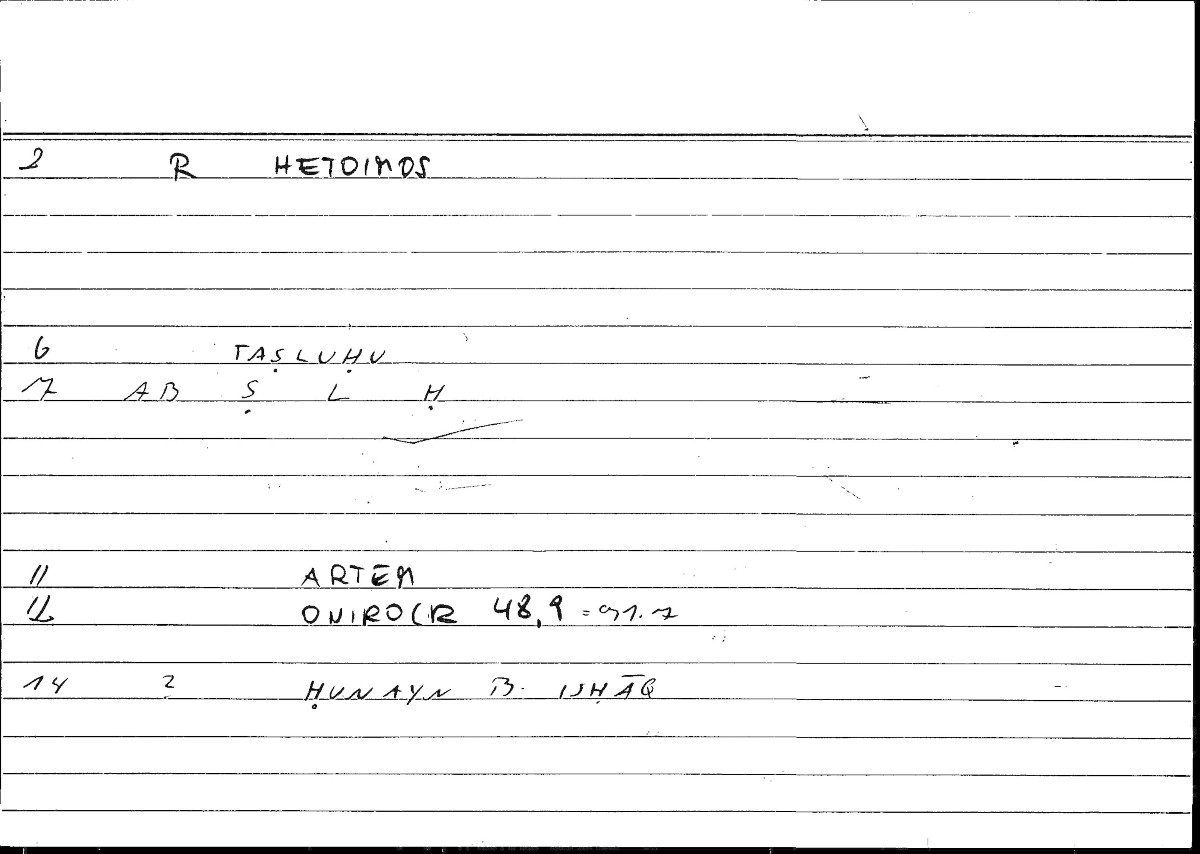 2 R HETOIMOS
6 TAṢLUḤU
7 AB Ṣ L Ḥ
11 ARTEM
12 ONIROCR 48,9 = 91.7
14 2 ḤUNAYN B. ISḤĀQ